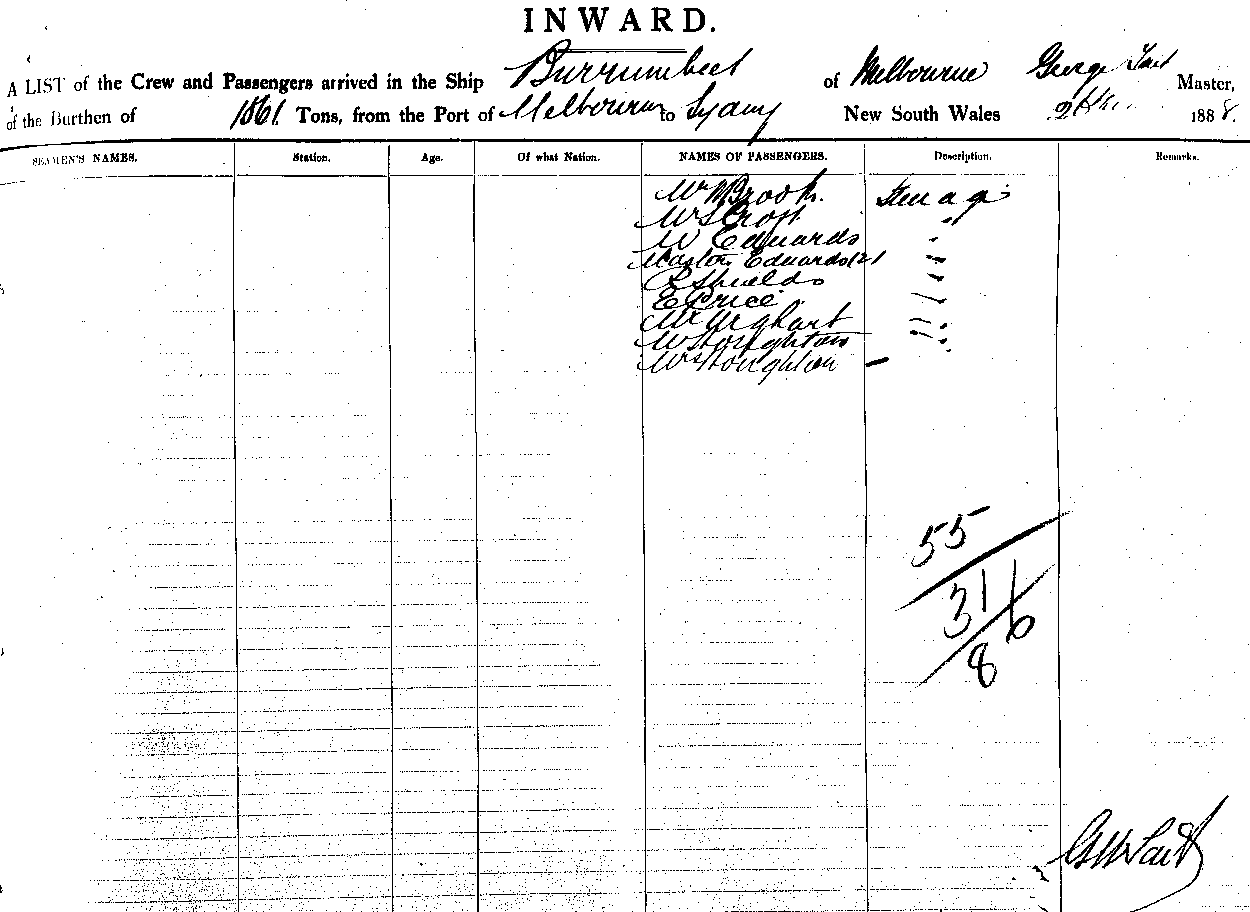 INWARD.
A LIST of the Crew and Passengers arrived in the Ship Burrumbeet of Melbourne George Tait Master,
of the Burthen of 1861 Tons, from the Port of Melbourne to Sydney New South Wales 1888.
SEAMEN'S NAMES. Station. Age. Of what Nation. NAMES OF PASSENGERS. Description. Remarks.
Brook
Croft
W Edwards
Master Edwards
Shields
E Price
Mr Urghart
W Stoughton
Stoughton
55
31 6
8
Tait